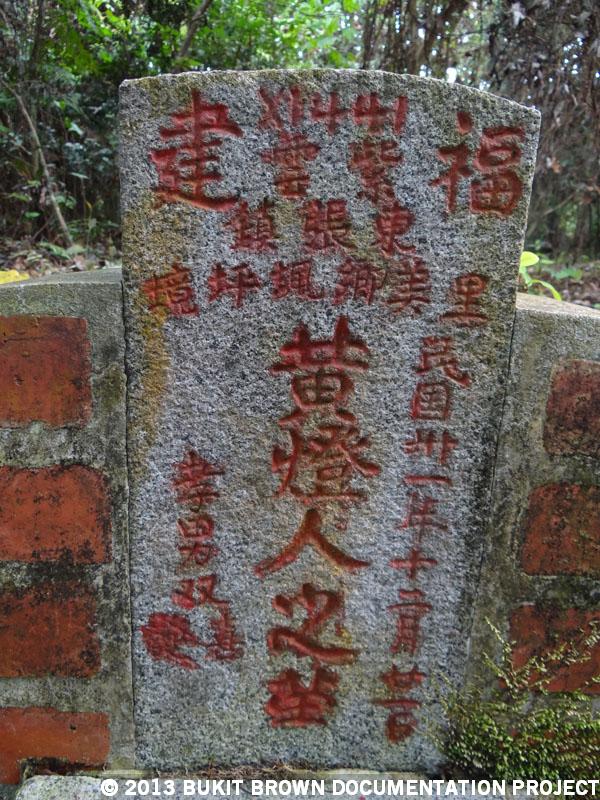 福建
紫雲
東張鎮
里美鄉堸坪境
民国卅一年十二月廿日
黄燈人之茔
孝男双喜
© 2013 BUKIT BROWN DOCUMENTATION PROJECT